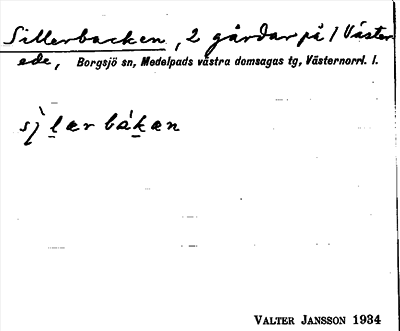 Sillerbacken, 2 gårdar på 1 Väster
ede, Borgsjö sn, Medelpads västra domsagas tg, Västernorrl. l.
sì̀lærbákæn
VALTER JANSSON 1934